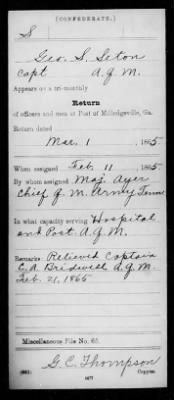 (CONFEDERATE.)
S
Geo. S. Seton
Capt A. Q. M.
Appears on a tri-monthly
Return
of officers and men at Post of Milledgeville, Ga.
Return dated
Mar. 1, 1865
When assigned Feb. 11, 1865
By whom assigned Maj. Ayer
Chief Q M. Army Tenne
In what capacity serving Hospital
and Post A. Q. M.
Remarks: Relieved Captain
E. A. Bridwell A. Q. M.
Feb. 21, 1865
Miscellaneous File No. 65.
G. C. Thompson
Copyist.